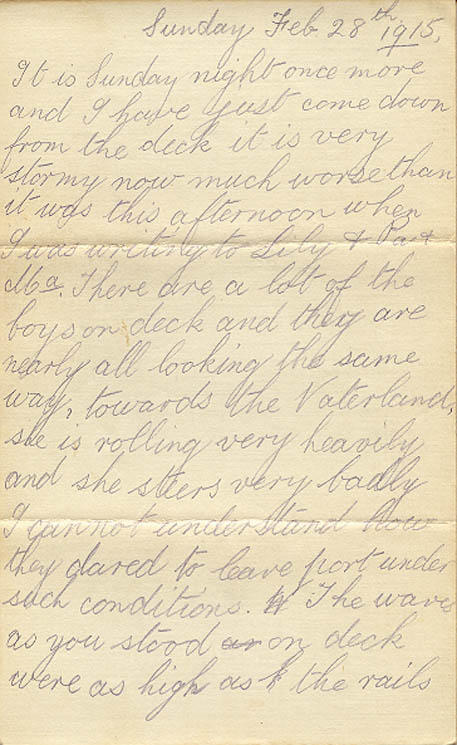 Sunday Feb 28th 1915,
It is Sunday night once more
and I have just come down
from the deck it is very
stormy now much worse than
it was this afternoon when
I was writing to Lily & Pa &
Ma. There are a lot of the
boys on deck and they are
nearly all looking the same
way, towards the Vaterland,
she is rolling very heavily
and she steers very badly
I cannot understand how
they dared to leave port under
such conditions. The waves
as you stood on deck
were as high as the rails